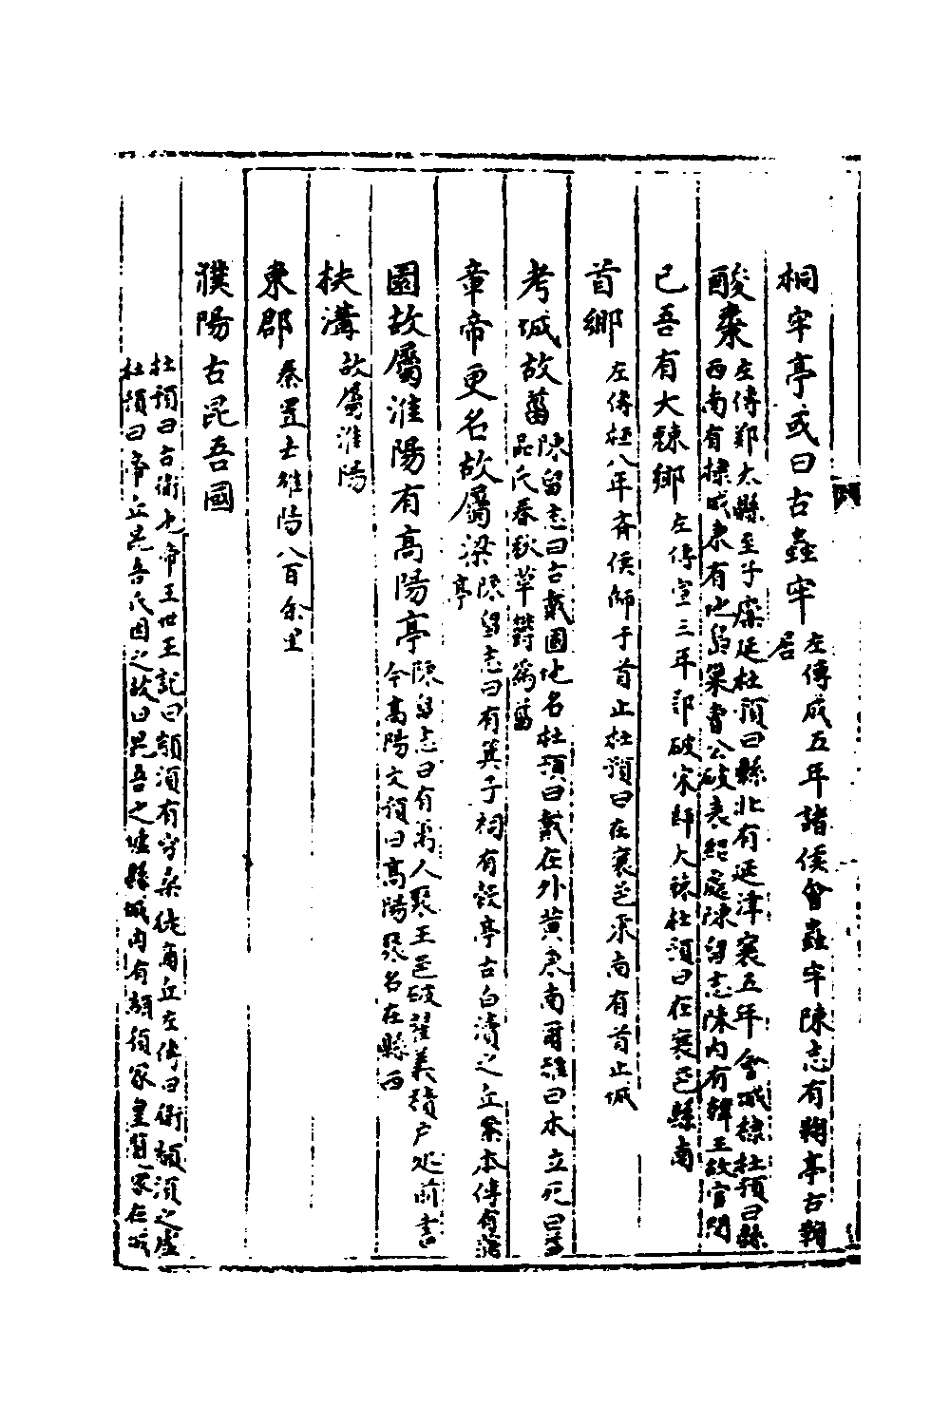 桐牢亭或曰古蟲牢
左傳成五年諸侯會蟲牢陳志有鞠亭古鞠
居
酸棗
左傳鄭太縣至于廩延杜預曰縣北有延津襄五年會城棣杜預曰縣
西南有棣城東有地烏巢曹公破袁紹處陳留志陳內有韓王故宮闕
己吾有大棘鄉
左傳宣三年鄭破宋師大棘杜預曰在襄邑縣南
首鄉
左傳桓八年齊侯師于首止杜預曰在襄邑東南有首止城
考城故菑
陳留志曰古戴國地名杜預曰戴在外黃東南爾雅曰木立死曰菑
呂氏春秋草鬱為菑
章帝更名故屬梁
陳留志曰有箕子祠有穀亭古句瀆之丘案本傳有蒲
亭
圉故屬淮陽有高陽亭
陳留志曰有萬人聚王邑破翟義積尸處前書
今高陽文穎曰高陽聚名在縣西
扶溝
故屬淮陽
東郡
秦置去雒陽八百余里
濮陽古昆吾國
杜預曰古衛也帝王世王記曰顓頊自窮桑徙商丘左傳曰衛顓頊之虛
杜預曰帝丘昆吾氏因之故曰昆吾之墟縣城內有顓頊冢皇覽冢在城